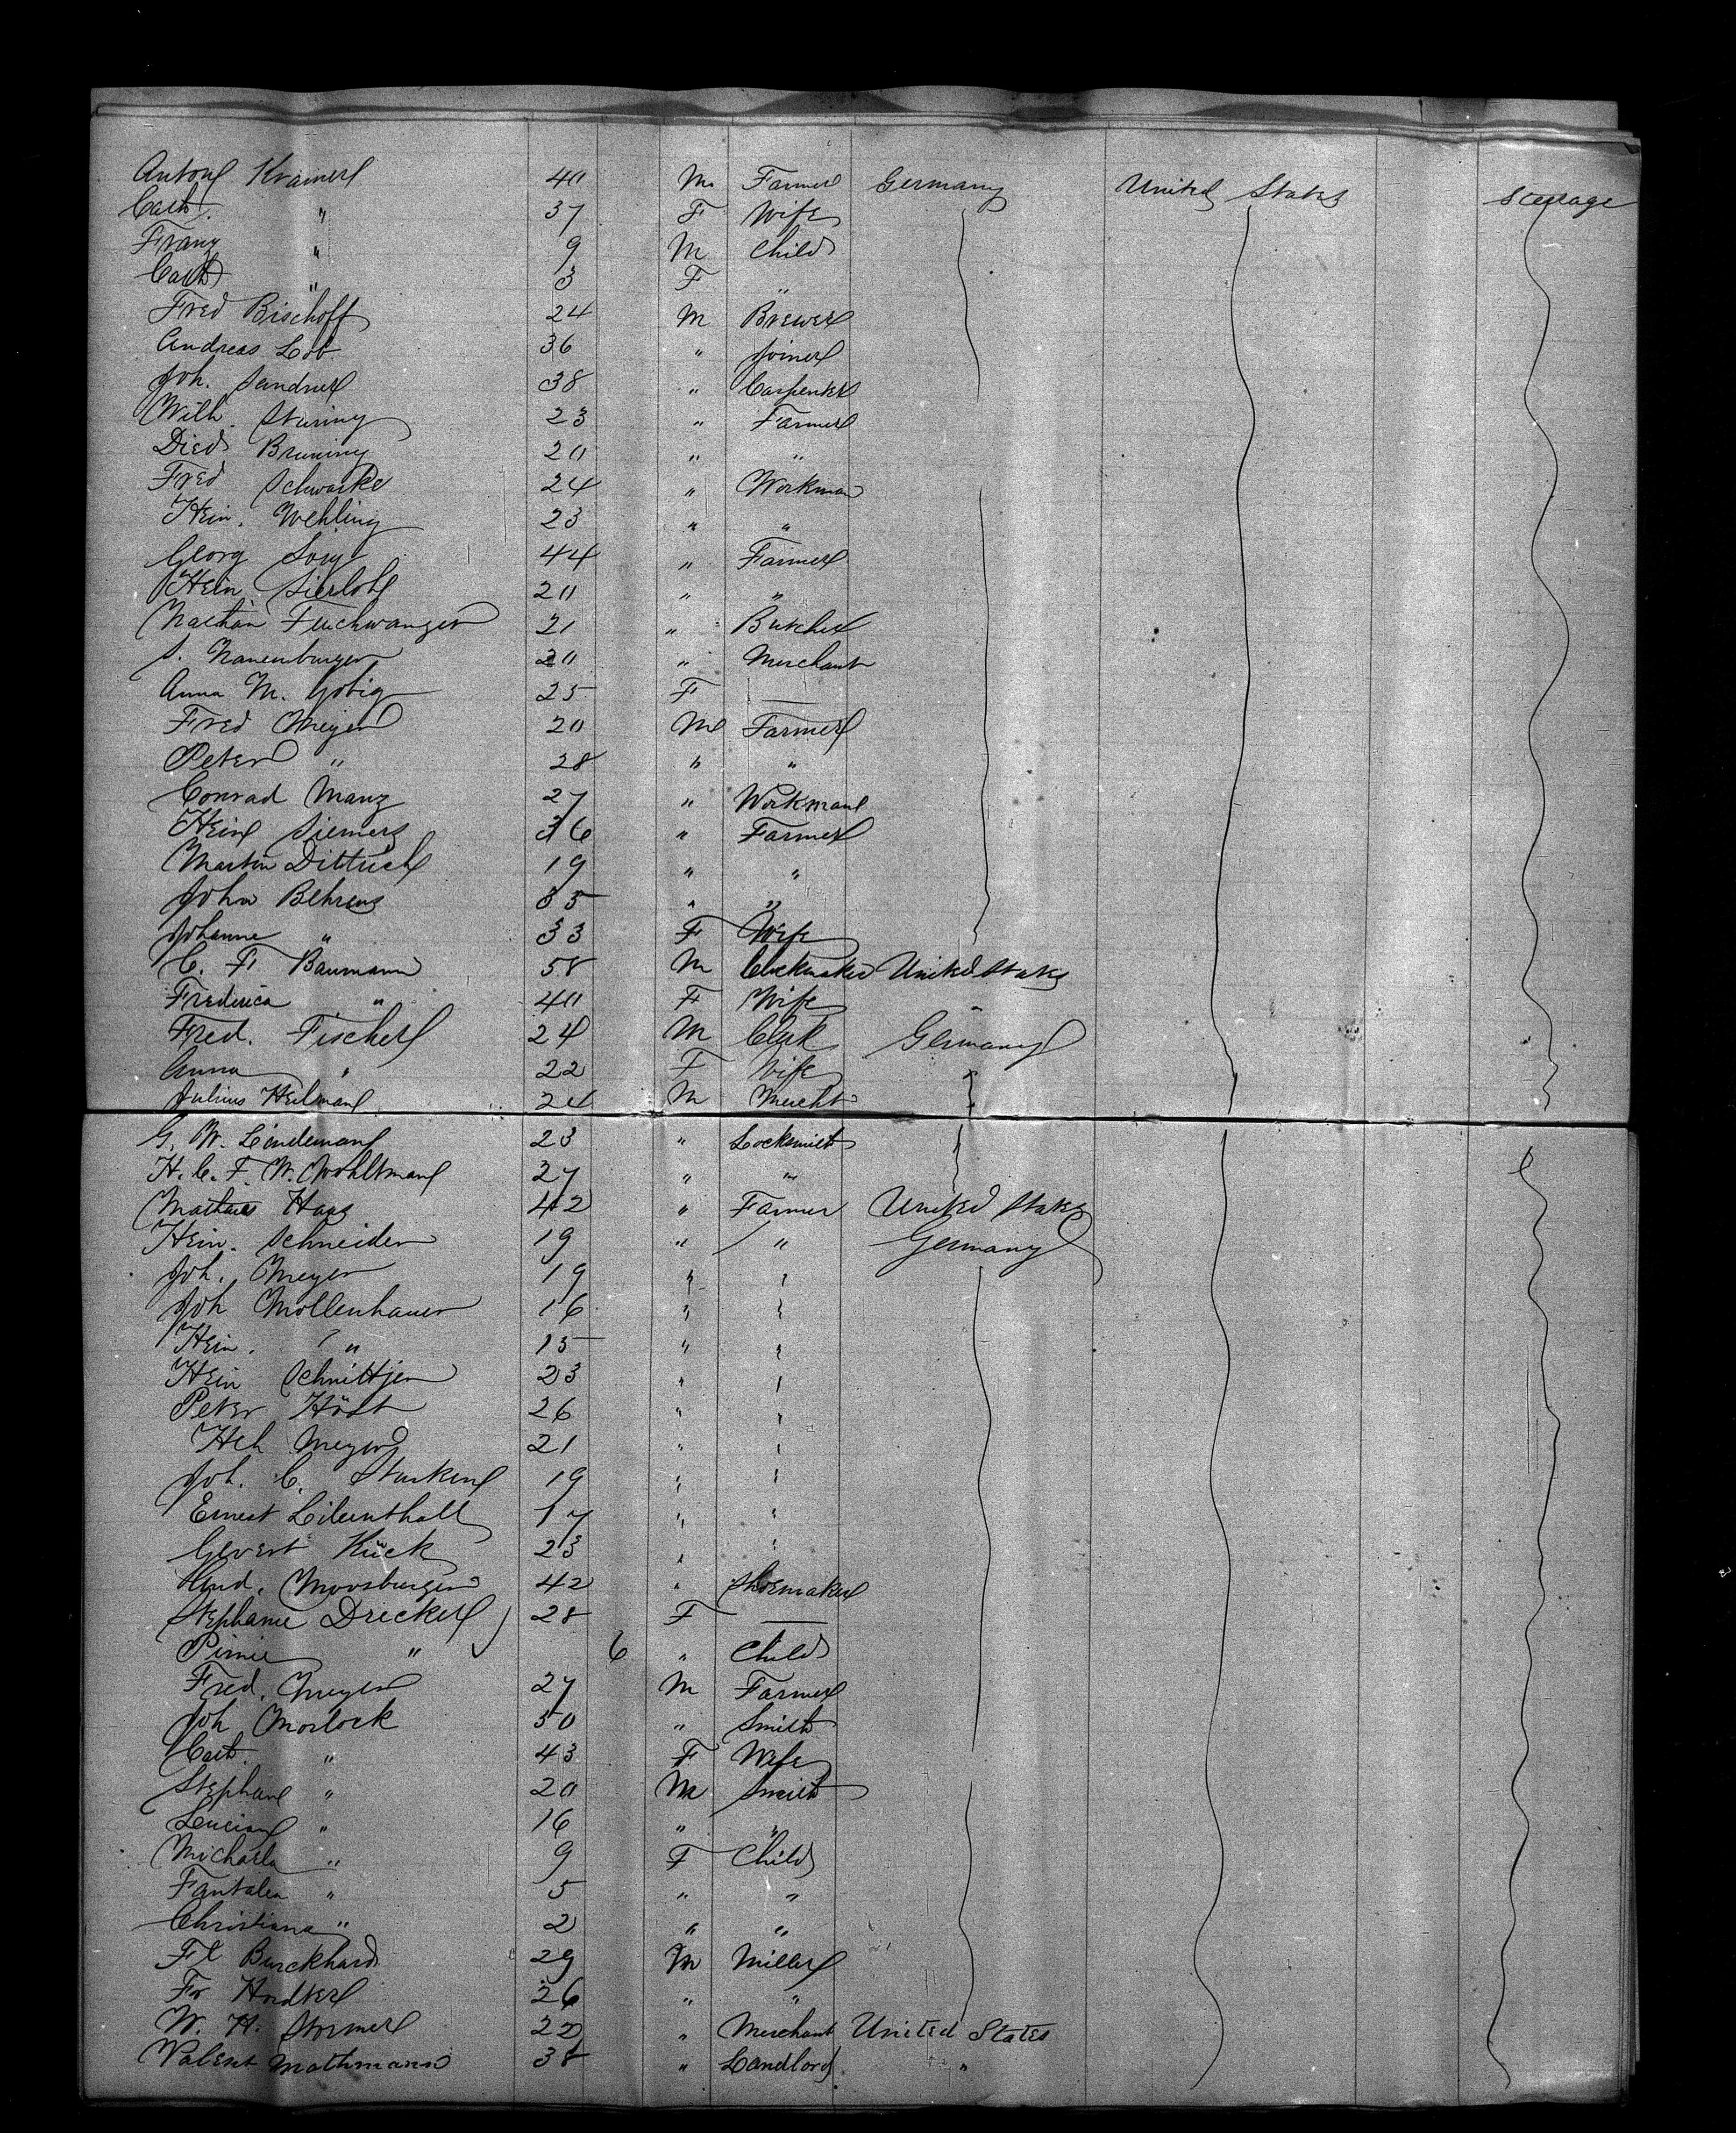 Anton Kramer 40 M. Farmer Germany United States Steerage
Cath. " 37 F Wife
Franz " 9 M Child
Cath " 3 F "
Fred Bischoff 24 M Brewer
Andreas Lob 36 " Joiner
Joh. Sandner 38 " Carpenter
Wilh. Sturing 23 " Farmer
Died Bruning 20 " "
Fred Schwarke 24 " Workman
Hein. Wehling 23 " "
Georg 44 " Farmer
Hein. Sierloh 20 " "
Nathan Feuchwanger 21 " Butcher
S. Nanenburger 20 " Merchant
Anna M. Gobig 25 F —
Fred Meyer 20 M Farmer
Peter " 28 " "
Conrad Manz 27 " Workman
Hein Siemers 36 " Farmer
Martin Dittrich 19 " "
John Behrens 35 " "
Johanne " 33 F Wife
C. F Baumann 58 M Clockmaker United States
Frederica " 40 F Wife
Fred. Fischer 24 M Clerk Germany
Anna " 22 F Wife
Julius Heilman 24 M Mercht
G. W. Lindeman 23 " Locksmith
H. C. F. W. Wohltman 27 " "
Mathias Haas 42 " Farmer United States
Hein. Schneider 19 " " Germany
Joh. Meyer 19 " "
Joh Mollenhauer 16 " "
Hein. " 15 " "
Hein Schnittjer 23 " "
Peter Höst 26 " "
Hch Meyer 21 " "
Joh. C. Starken 19 " "
Ernest Lilienthall 17 " "
Gevert Kück 23 " "
And. Moosburger 42 " Shoemaker
Stephanie Drecker 28 F —
" 6 " Child
Fred. Meyer 27 M Farmer
Joh Morlock 50 " Smith
Cath. " 43 F Wife
Stephan " 20 M Smith
Lucian " 16 " "
Michaela " 9 F Child
Fantalea " 5 " "
Christiana " 2 " "
Fl Burckhard 29 M Miller
Fr 26 " "
W. H. Stormer 22 " Merchant United States
Valent Mathmann 38 " Landlord "